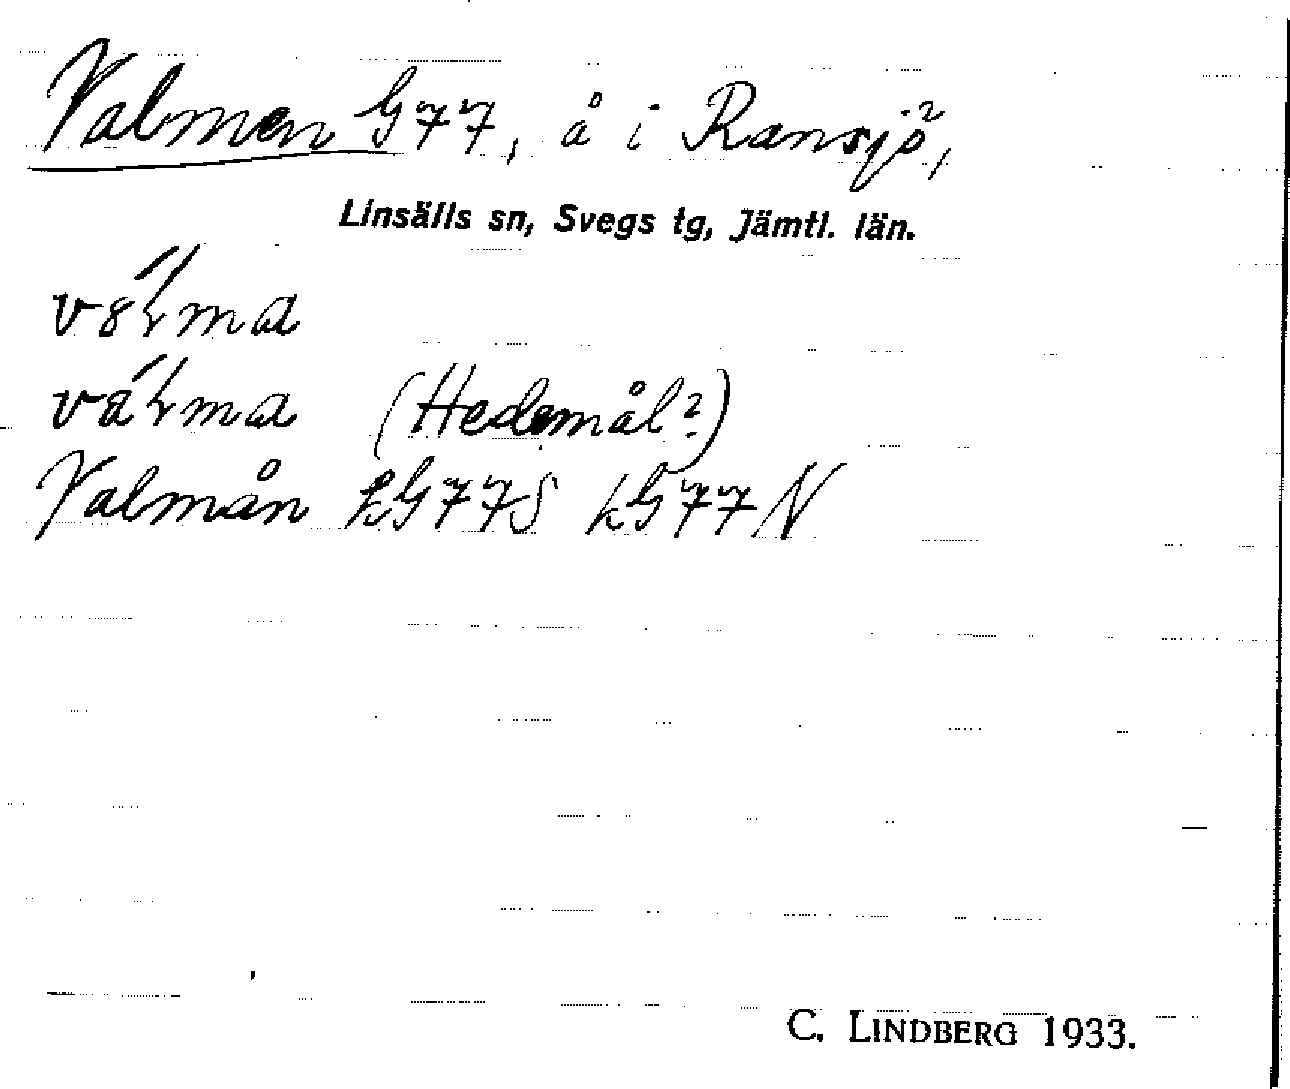 Valmen G77, å i Ransjö,
Linsälls sn, Svegs tg, Jämtl. län.
(Hedemål?)
Valmån LG77S LG77N
C. LINDBERG 1933.